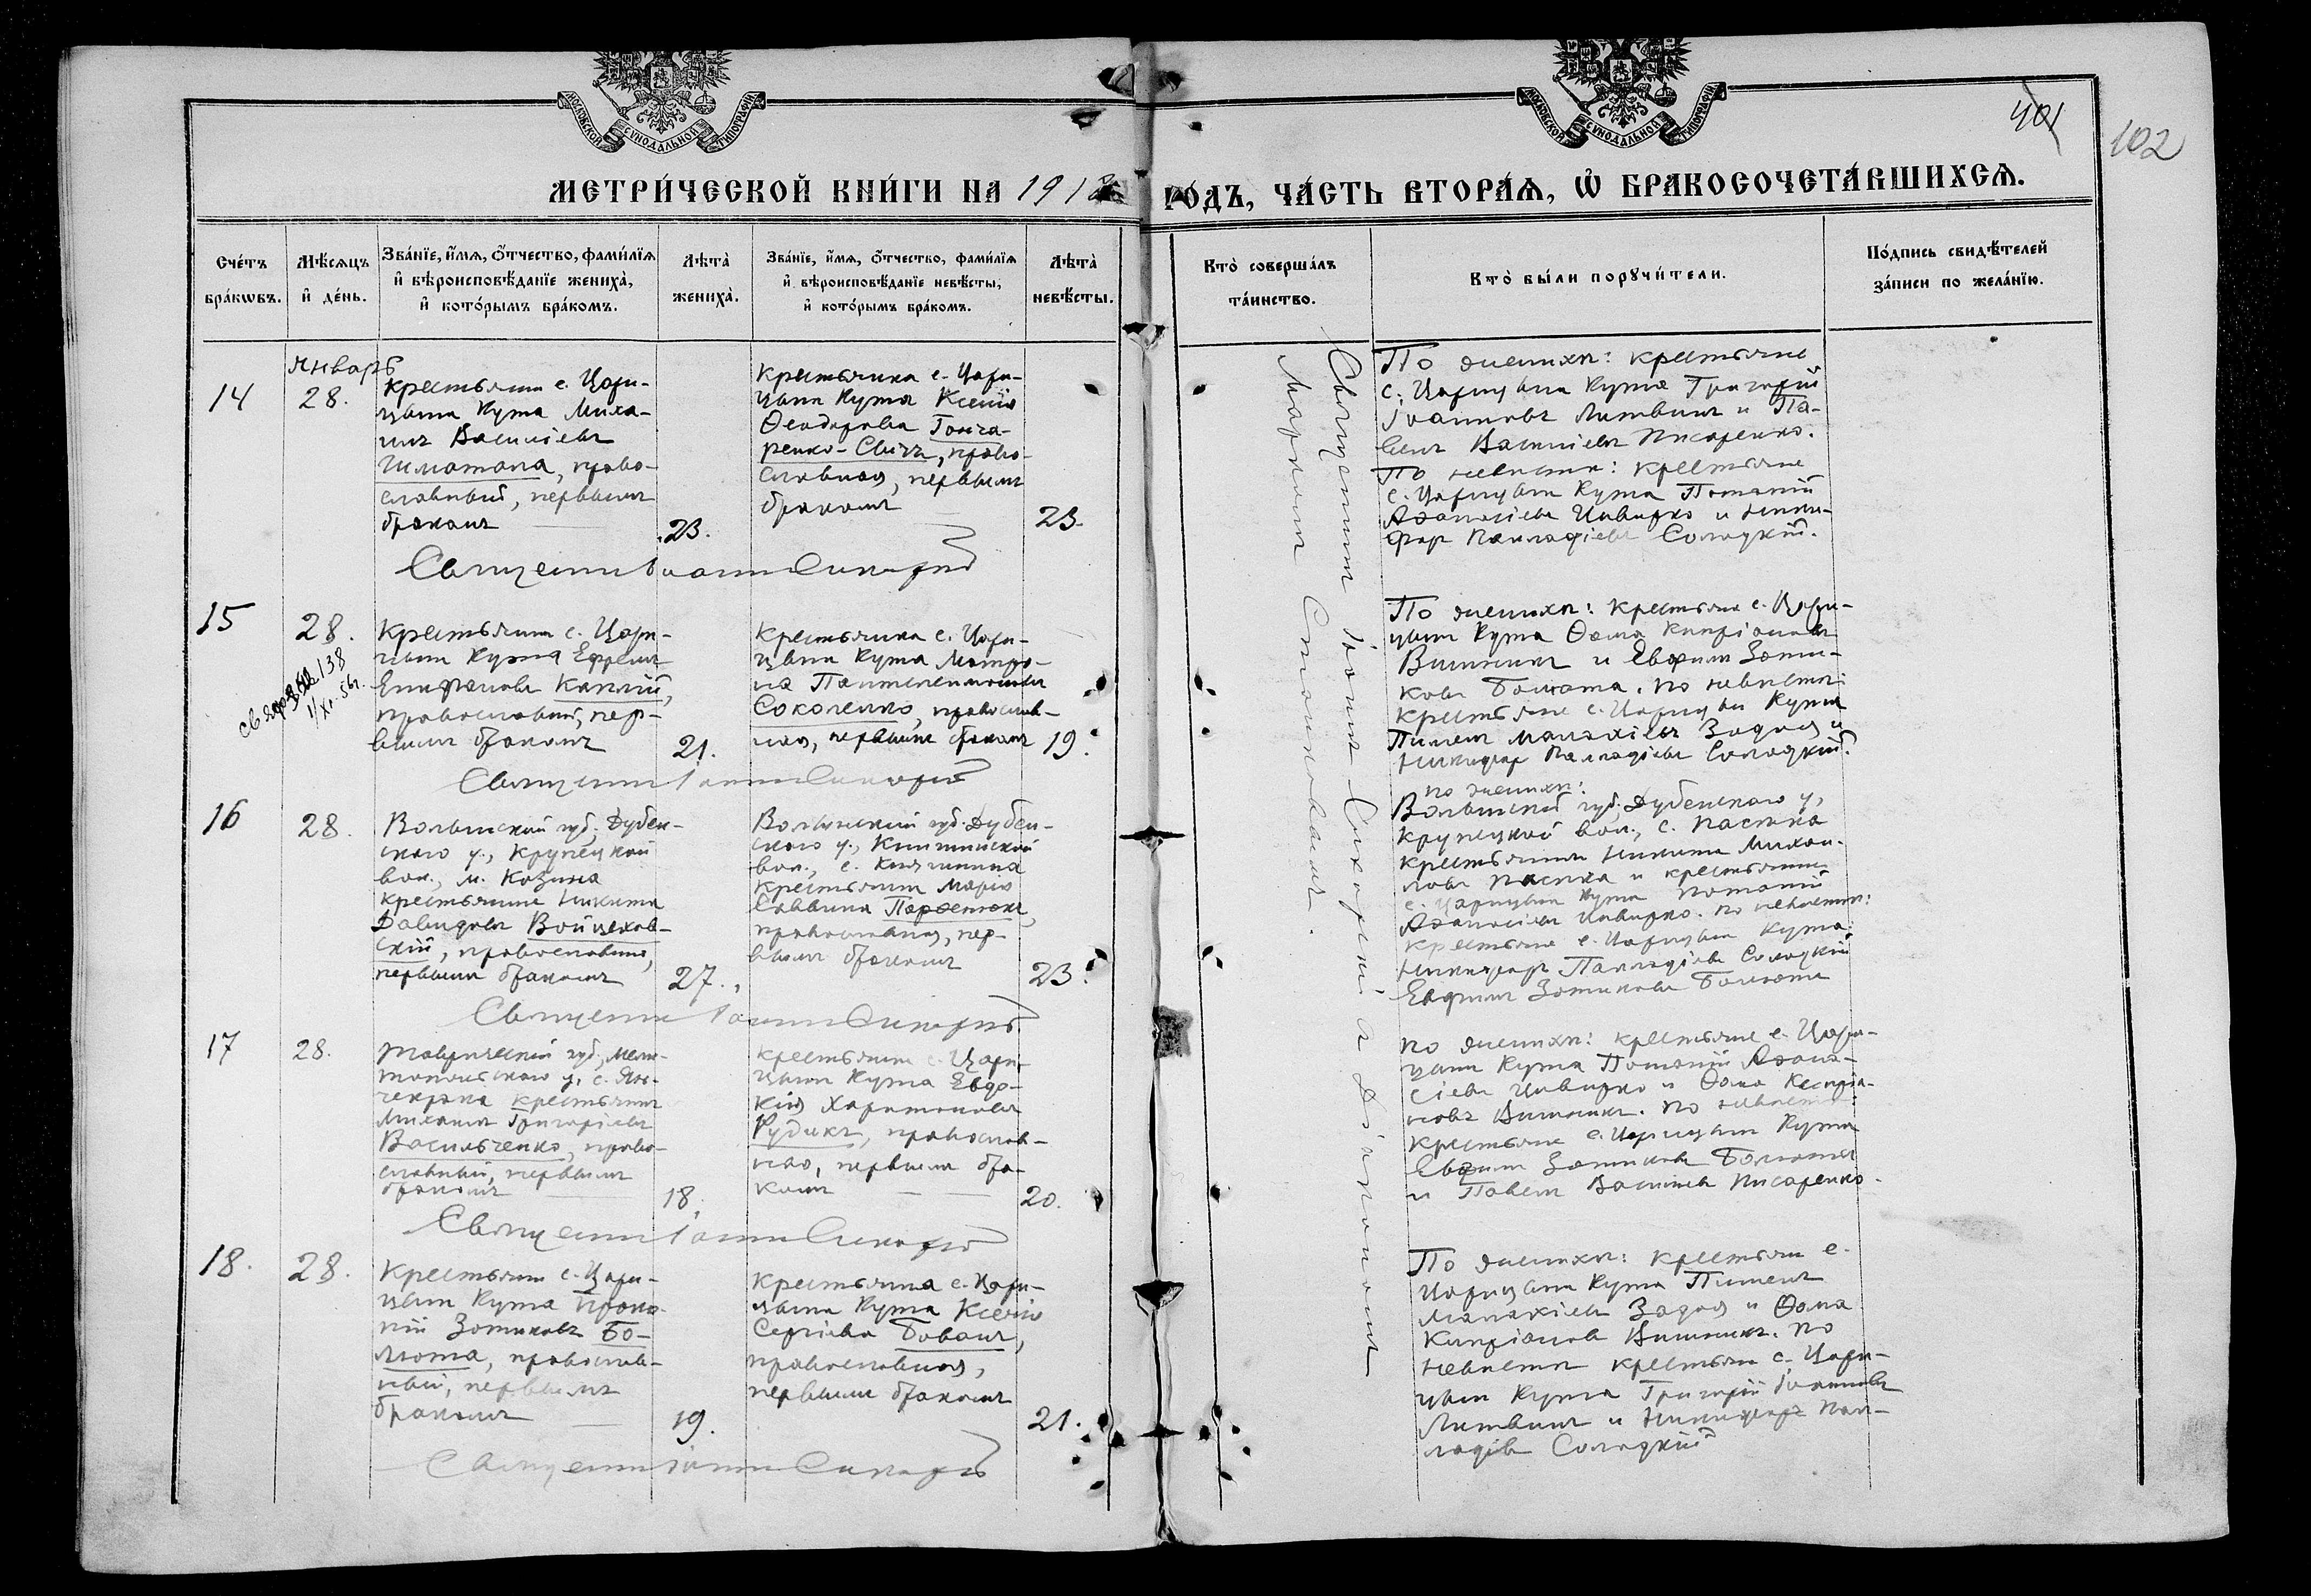 МОСКОВСКОЙ СУНОДАЛЬНОЙ ТИПОГРАФІИ
МОСКОВСКОЙ СУНОДАЛЬНОЙ ТИПОГРАФІИ
401
102
МЕТРИ́ЧЕСКОЙ КНИ́ГИ НА 1918 ГО́ДЪ, ЧА́СТЬ ВТОРА́Ѧ, Ѽ БРАКОСОЧЕТА́ВШИХСѦ.
Сче́тъ бра́кѡвъ.
Мѣ́сѧцъ и҆ де́нь.
Зва́нїе, и҆́мѧ, ѻ҆́тчество, фами́лїѧ и҆ вѣроисповѣ́данїе жениха̀, и҆ кото́рымъ бра́комъ.
Лѣта̀ жениха̀.
Зва́нїе, и҆́мѧ, ѻ҆́тчество, фами́лїѧ и҆ вѣроисповѣ́данїе невѣ́сты, и҆ кото́рымъ бра́комъ.
Лѣта̀ невѣ́сты.
Кто̀ соверша́лъ та́инство.
Кто̀ бы́ли порꙋчи́тели.
По́дпись свидѣ́телей за́писи по жела́нїю.
Январь
14
28.
Крестьянин с. Цари-
цына Кута Миха-
ил Василіевъ
Шматала, право-
славный, первымъ
бракомъ
23.
Крестьянка с. Цари-
цына Кута Ксенія
Ѳеодорова Гонча-
ренко-Свичъ, право-
славная, первымъ
бракомъ
23.
По женихѣ: крестьяне
с. Царицына Кута Григорій
Іоанновъ Литвинъ и Па-
велъ Василіевъ Писаренко.
По невѣстѣ: крестьяне
с. Царицына Кута Потапій
Аѳанасіевъ Цивирко и Ники-
фор Палладіевъ Солодкій.
Священник Іоанн Сикорскій
Священник Іоанн Сикорскій и діаконом
Маркомъ
15
28.
138
1/XI. 56г.
Крестьянин с. Цари-
цына Кута Ефремъ
Епифановъ Каплій,
православный, пер-
вымъ бракомъ
21.
Крестьянка с. Цари-
цына Кута Матро-
на Пантелеимонова
Соколенко, православ-
ная, первымъ бракомъ
19.
По женихѣ: крестьяне с. Цари-
цына Кута Ѳома Кипріановъ
Вишникъ и Евфим Зоти-
ковъ Болюта. По невѣстѣ:
крестьяне с. Царицына Кута
Пименъ Малахіевъ Задоя и
Никифор Палладіевъ Солодкій.
Священник Іоанн Сикорскій
16
28.
Волынской губ., Дубен-
скаго у., Крупецкой
вол., м. Козина
крестьянинъ Никита
Давидовъ Войцехов-
скій, православный,
первымъ бракомъ
27.
Волынской губ. Дубен-
скаго у., Княгининской
вол., с. Княгинина
крестьянка Марія
Саввина Парфенюкъ,
православная, пер-
вымъ бракомъ
23.
По женихѣ:
Волынской губ. Дубенскаго у.
Крупецкой вол., с. Пасѣка
крестьянинъ Никита Михаи-
ловъ Пасѣка и крестьянинъ
с. Царицына Кута Потапій
Аѳанасіевъ Цивирко. По невѣстѣ:
крестьяне с. Царицына Кута:
Никифоръ Палладіевъ Солодкій
Евфимъ Зотиковъ Болюта
Священник Іоанн Сикорскій
17
28.
Таврической губ., Мели-
топольского у., с. Ян-
чекрака крестьянинъ
Михаилъ Григоріевъ
Васильченко, право-
славный, первымъ
бракомъ
18.
Крестьянка с. Цари-
цына Кута Евдо-
кія Харитонова
Рудикъ, православ-
ная, первымъ бра-
комъ
20.
По женихѣ: крестьяне с. Цари-
цына Кута Потапій Аѳана-
сіевъ Цивирко и Ѳома Кипріа-
новъ Вишникъ. По невѣстѣ:
крестьяне с. Царицына Кута
Евфим Зотиковъ Болюта
и Павелъ Василіевъ Писаренко.
Священник Іоанн Сикорскій
18.
28.
Крестьянин с. Цари-
цына Кута Проко-
пій Зотиковъ Бо-
люта, православ-
ный, первымъ
бракомъ
19.
Крестьянка с. Цари-
цына Кута Ксенія
Сергіева Бованъ,
православная,
первымъ бракомъ
21.
По женихѣ: крестьяне с.
Царицына Кута Пименъ
Малахіевъ Задоя и Ѳома
Кипріановъ Вишникъ. По
невѣстѣ крестьяне с. Цари-
цына Кута Григорій Іоанновъ
Литвинъ и Никифоръ Пал-
ладіевъ Солодкій
Священник Іоанн Сикорскій